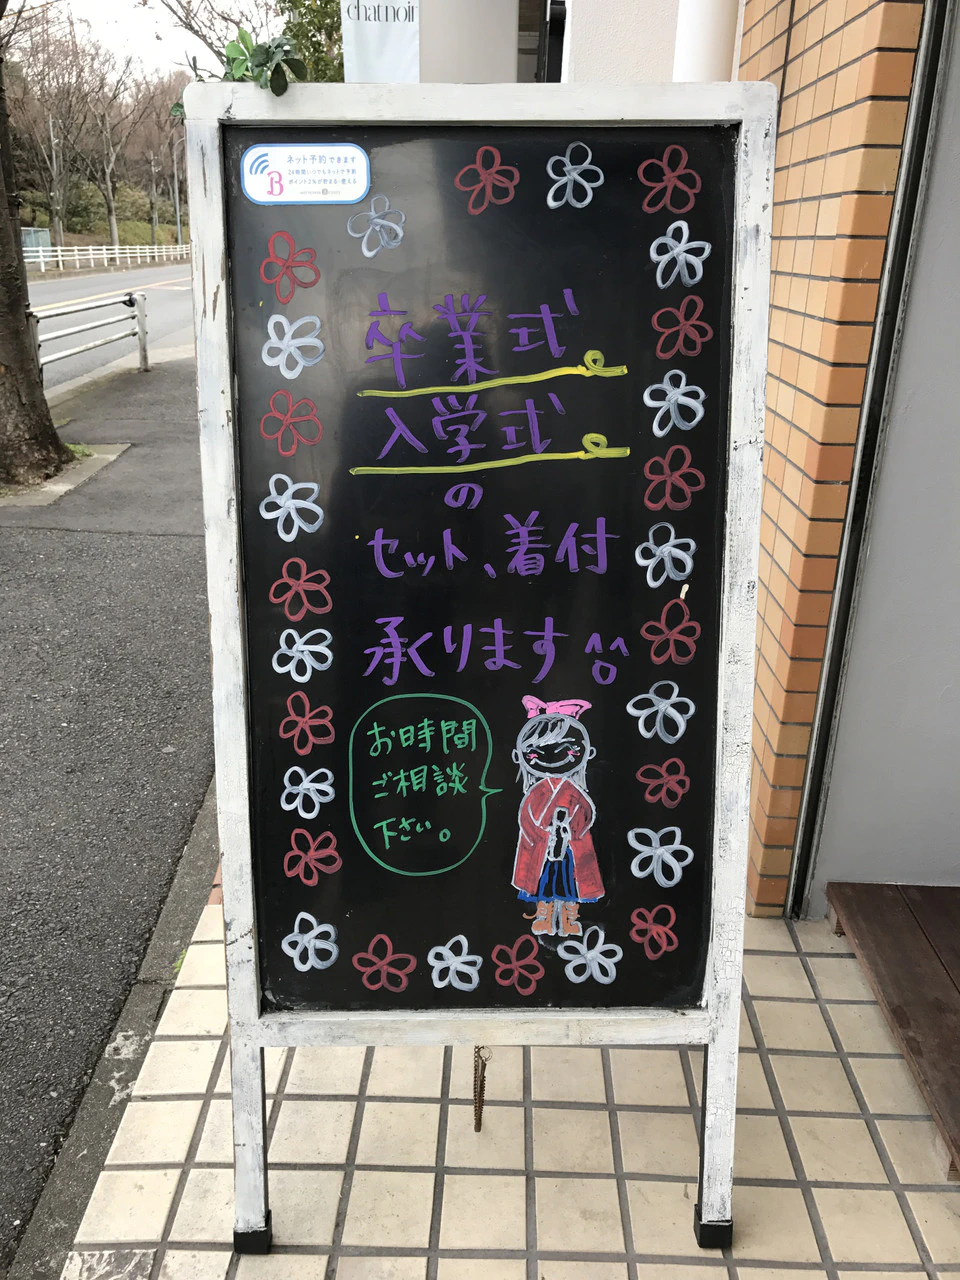 chat noir
ネット予約できます
24時間いつでもネットで予約
ポイント2%が貯まる・使える
B
卒業式
入学式
の
セット、着付
承ります^^
お時間
ご相談
下さい。